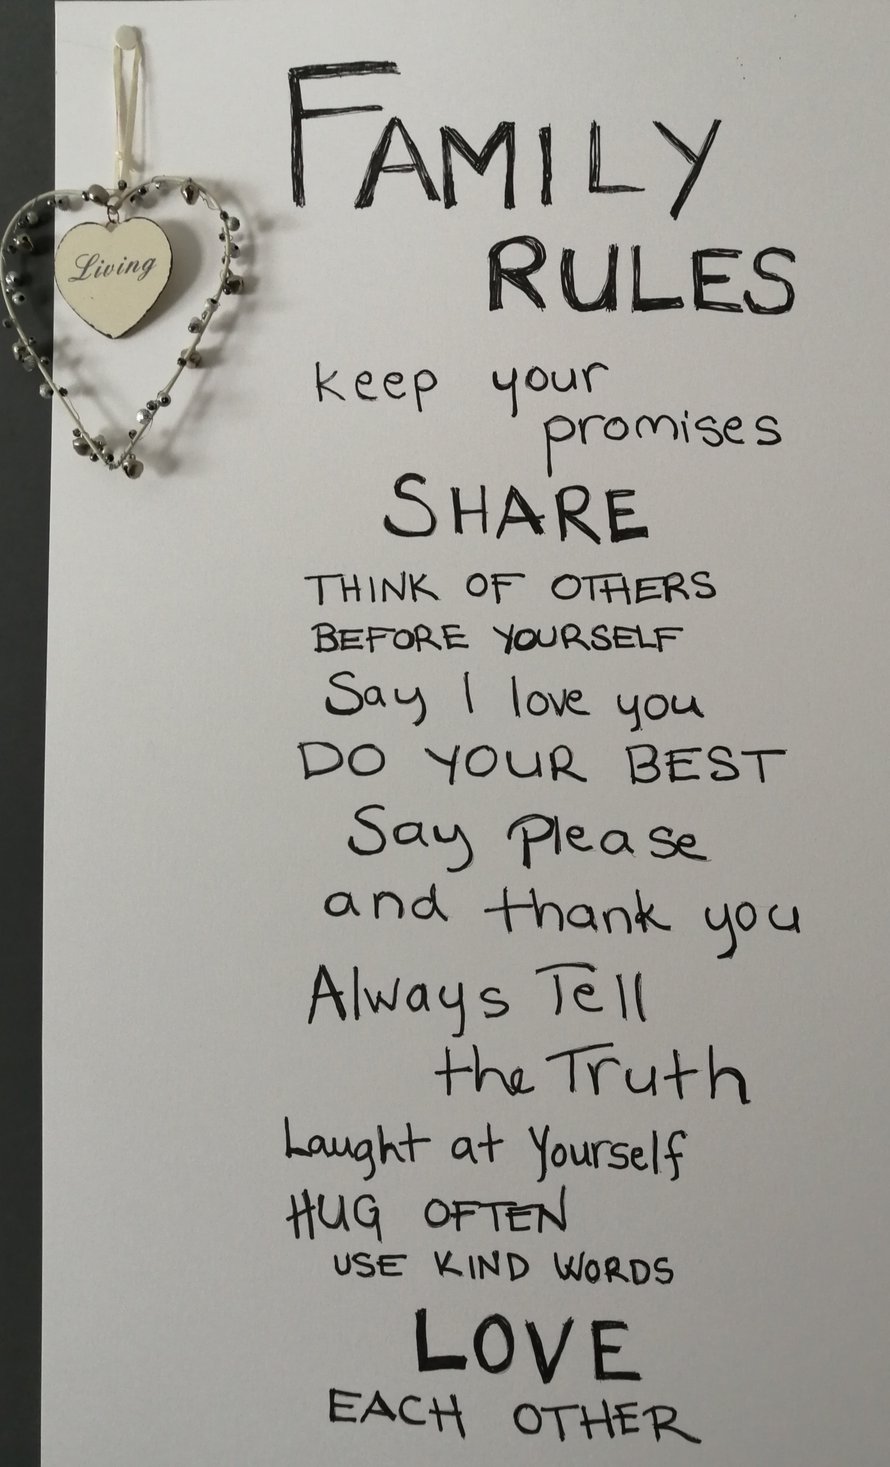 Living
FAMILY
RULES
keep your
promises
SHARE
THINK OF OTHERS
BEFORE YOURSELF
Say I love you
DO YOUR BEST
Say Please
and thank you
Always Tell
the Truth
Laught at Yourself
HUG OFTEN
USE KIND WORDS
LOVE
EACH OTHER